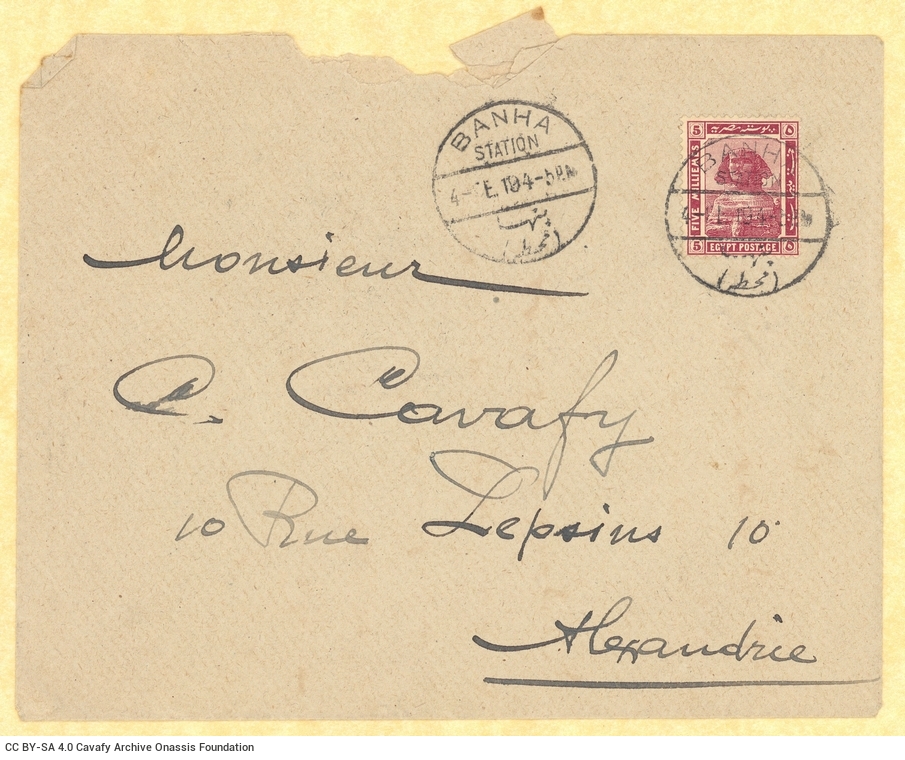 BANHA
STATION
4- E. 19 4-5 P.M
بنها
(محطه)
5 بوسته مصريه ٥
FIVE MILLIEMES
5 EGYPT POSTAGE ٥
BANHA
(محطه)
Monsieur
C. Cavafy
10 Rue Lepsius 10
Alexandrie
CC BY-SA 4.0 Cavafy Archive Onassis Foundation